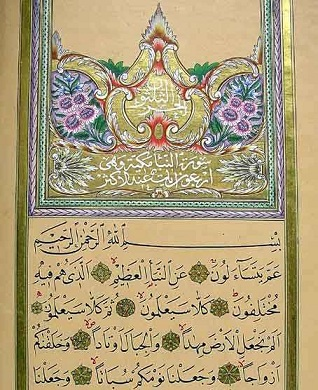 الجزء الثلثون
سورة النبأ مكية وهى
اربعون اية عند الاكثر
بِسْمِ اللّٰهِ الرَّحْمٰنِ الرَّحِيمِ
عَمَّ يَتَسَٓاءَلُونَ عَنِ النَّبَأِ الْعَظِيمِ اَلَّذِى هُمْ فِيهِ
مُخْتَلِفُونَ كَلَّا سَيَعْلَمُونَ ثُمَّ كَلَّا سَيَعْلَمُونَ
اَلَمْ نَجْعَلِ الْاَرْضَ مِهَادًا وَالْجِبَالَ اَوْتَادًا وَخَلَقْنَاكُمْ
اَزْوَاجًا وَجَعَلْنَا نَوْمَكُمْ سُبَاتًا وَجَعَلْنَا